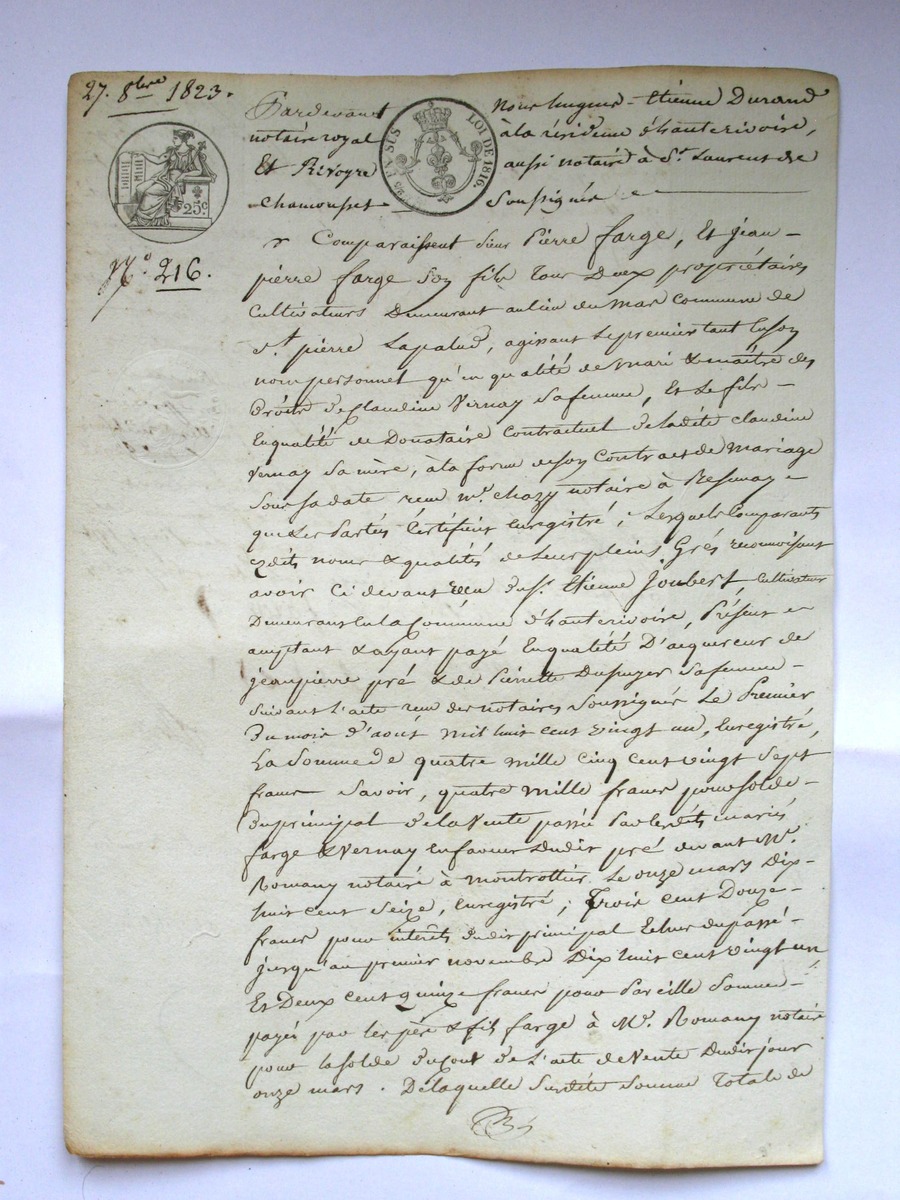 27. 8bre 1823.
Pardevant nous hugues-Etienne Durand
notaire royal à la résidence d'hauterivoire,
Et Rivoyre aussi notaire à St. Laurent de
Chamousset Soussignés
LOI DE 1816.
25c
No. 216.
Comparaissent Sieur Pierre farge, Et jean-
pierre farge Son fils Tous Deux propriétaires
Cultivateurs Demeurant au lieu du Mas Commune de
St. pierre Lapalud, agissant Le premier tant En son
nom personnel qu'en qualité de mari & maître des
Droits de Claudine Vernay Sa femme, Et Le fils-
En qualité de Donataire Contractuel de ladite claudine
Vernay Sa mère, à la forme de son Contract de Mariage
Sous sa date reçu Me. chazy notaire à
que Les Parties Certifient Enregistré; Lesquels Comparants
Esdits noms & qualités de Leurs pleins Grés reconnoissent
avoir Ci devant reçu du Sr. Etienne Joubert, Cultivateur
Demeurant En la Commune d'hauterivoire, Présent
acceptant & ayant payé En qualité D'acquereur de
jeanpierre pré & de Pierrette Dupuyer Sa femme-
Suivant L'acte reçu des notaires Soussignés Le Premier
Du mois d'août mil huit cent vingt un, Enregistré,
La Somme de quatre mille cinq cent vingt Sept
francs Savoir, quatre mille francs pour Solde-
du principal de la Vente passée Par lesdits mariés
farge & Vernay En faveur dudit pré devant Me.
Romany notaire à Montrottier Le onze mars Dix-
huit cent Seize, Enregistré; Trois cent Douze-
francs pour intérêts dudit principal Echus du passé-
jusqu'au premier novembre Dix huit cent vingt un
Et Deux cent quinze francs pour Pareille Somme-
payée par les père & fils farge à Me. Romany notaire
pour la solde du Cout de L'acte de Vente Dudit jour
onze mars. De laquelle Susdite Somme Totale de